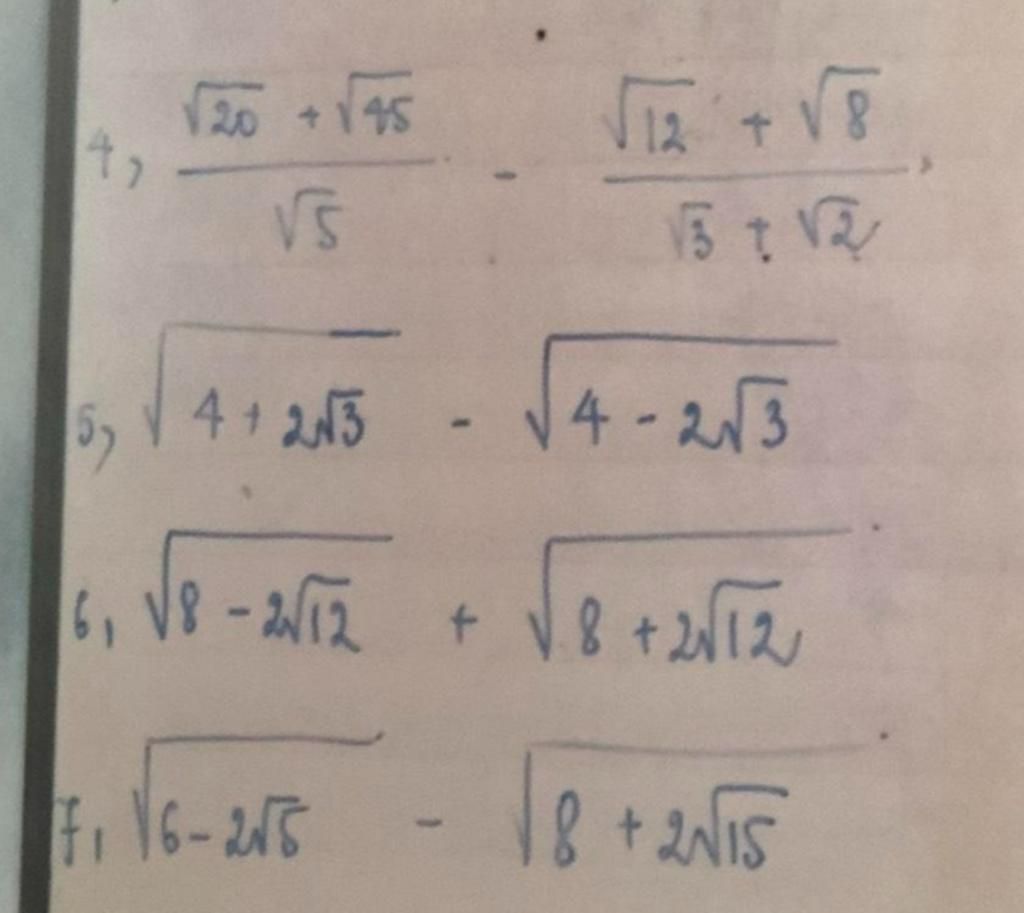 4, (√20 + √45)/√5 - (√12 + √8)/(√3 + √2),
5, √(4 + 2√3) - √(4 - 2√3)
6, √(8 - 2√12) + √(8 + 2√12)
7, √(6 - 2√5) - √(8 + 2√15)